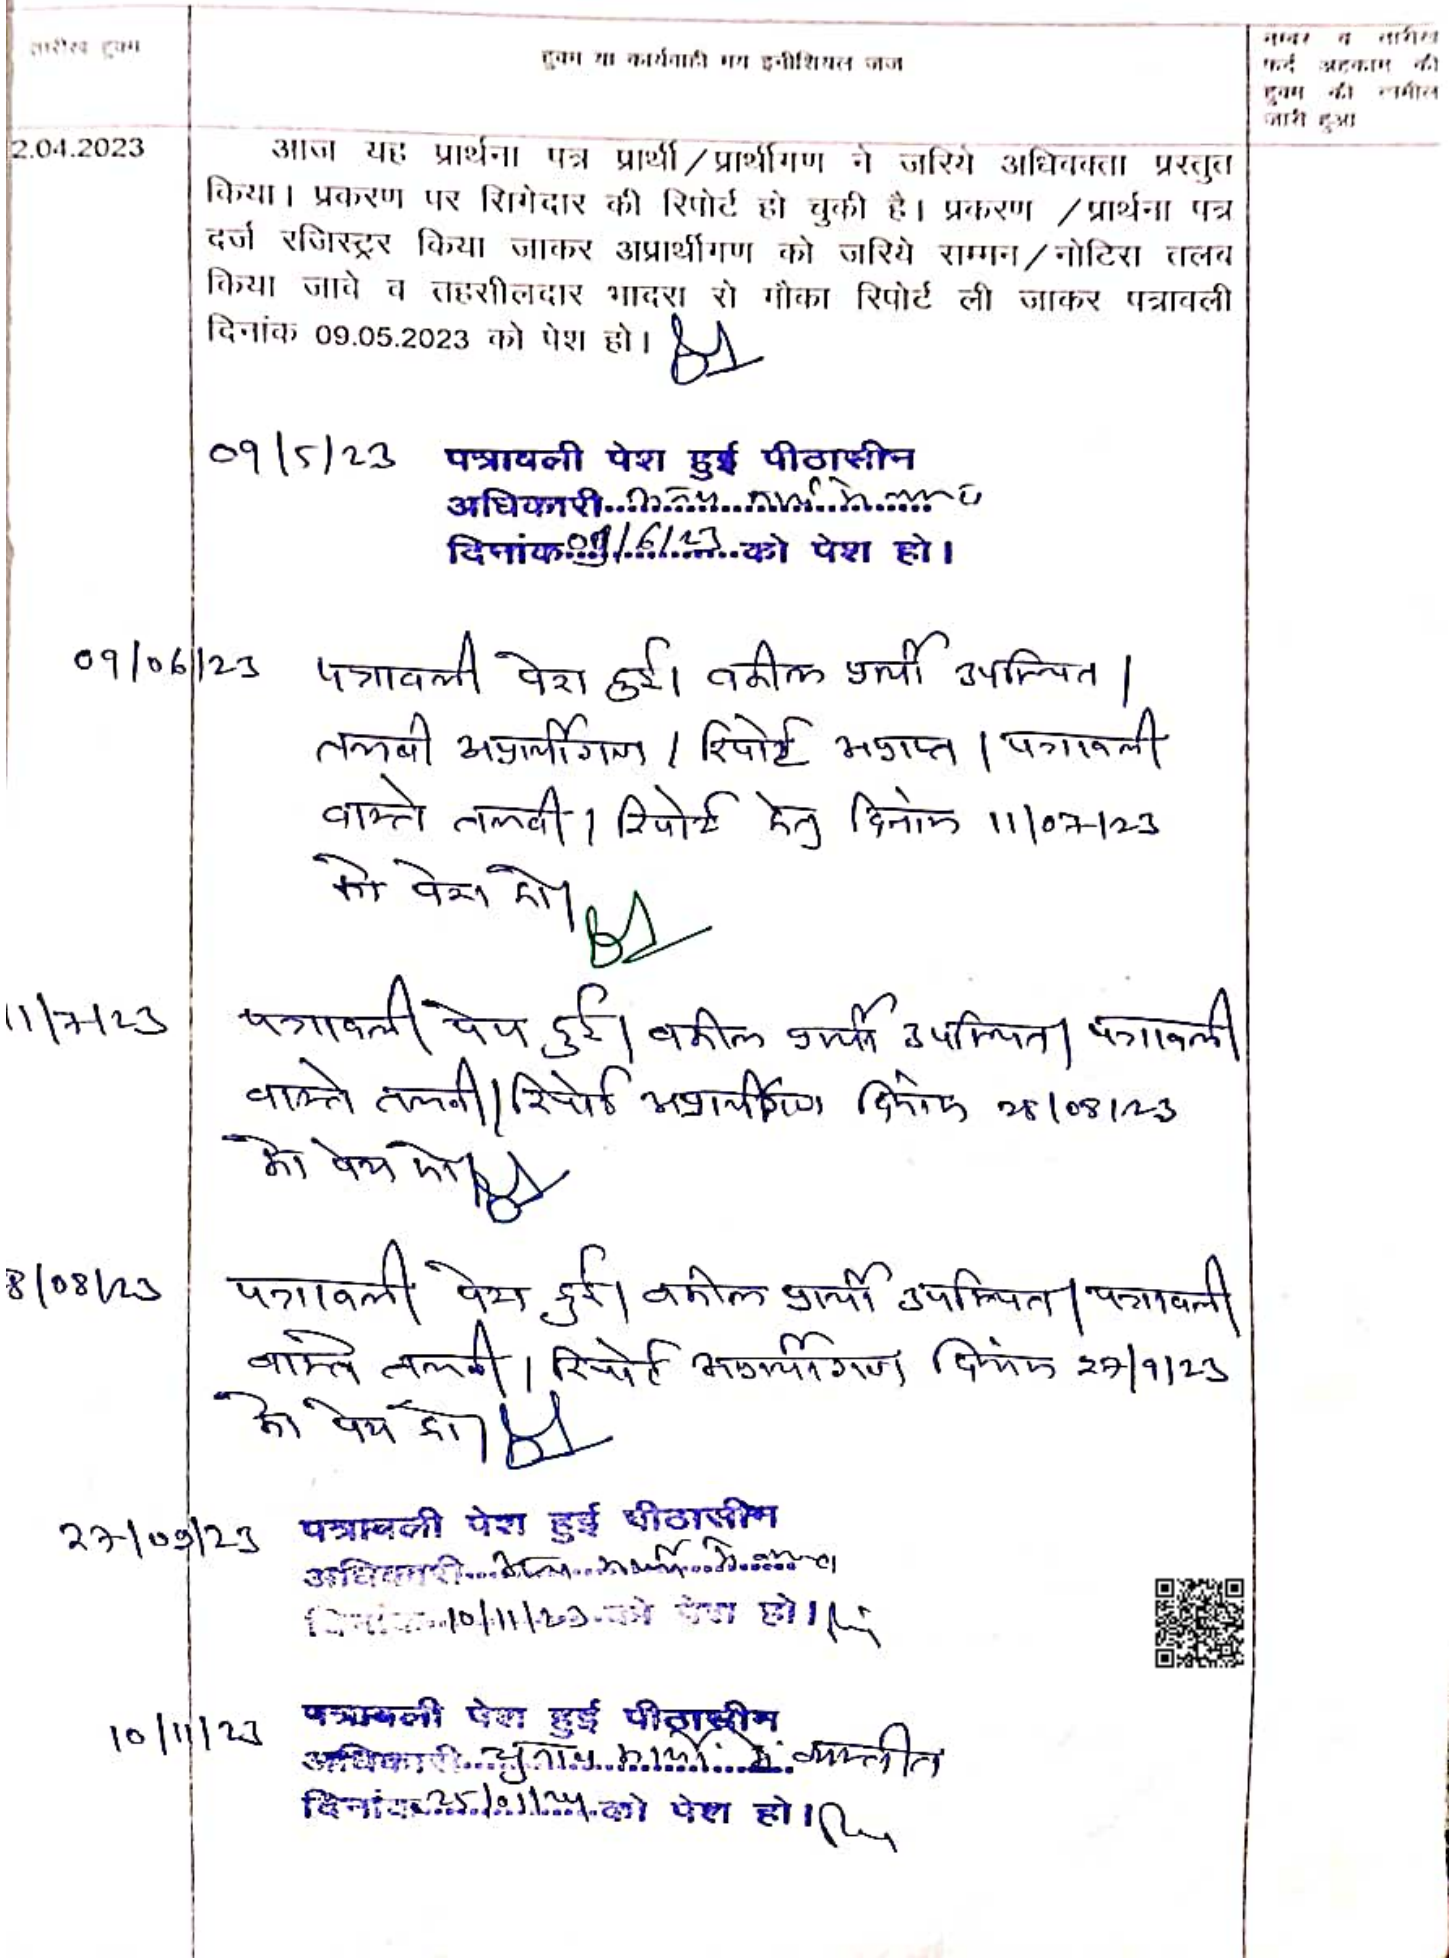 तारीख हुक्म
हुक्म या कार्यवाही मय इनीशियल जज
नम्बर व तारीख
फर्द अहकाम की
हुक्म की तामील
जारी हुआ
2.04.2023
आज यह प्रार्थना पत्र प्रार्थी/प्रार्थीगण ने जरिये अधिवक्ता प्रस्तुत
किया। प्रकरण पर सिगेदार की रिपोर्ट हो चुकी है। प्रकरण /प्रार्थना पत्र
दर्ज रजिस्ट्रर किया जाकर अप्रार्थीगण को जरिये सम्मन/नोटिस तलब
किया जावे व तहसीलदार भादरा से मौका रिपोर्ट ली जाकर पत्रावली
दिनांक 09.05.2023 को पेश हो।
09/5/23 पत्रावली पेश हुई पीठासीन
अधिकारी
दिनांक 09/6/23 को पेश हो।
09/06/23 पत्रावली पेश हुई। वकील प्रार्थी उपस्थित।
तलबी अप्रार्थीगण / रिपोर्ट अप्राप्त। पत्रावली
वास्ते तलबी / रिपोर्ट हेतु दिनांक 11/07/23
को पेश हो।
11/7/23 पत्रावली पेश हुई। वकील प्रार्थी उपस्थित। पत्रावली
वास्ते तलबी / रिपोर्ट अप्रार्थीगण दिनांक 28/08/23
को पेश हो।
8/08/23 पत्रावली पेश हुई। वकील प्रार्थी उपस्थित। पत्रावली
वास्ते तलबी / रिपोर्ट अप्रार्थीगण दिनांक 27/9/23
को पेश हो।
27/09/23 पत्रावली पेश हुई पीठासीन
अधिकारी
दिनांक 10/11/23 को पेश हो।
10/11/23 पत्रावली पेश हुई पीठासीन
अधिकारी चुनाव कार्यों में व्यस्त
दिनांक 25/01/24 को पेश हो।